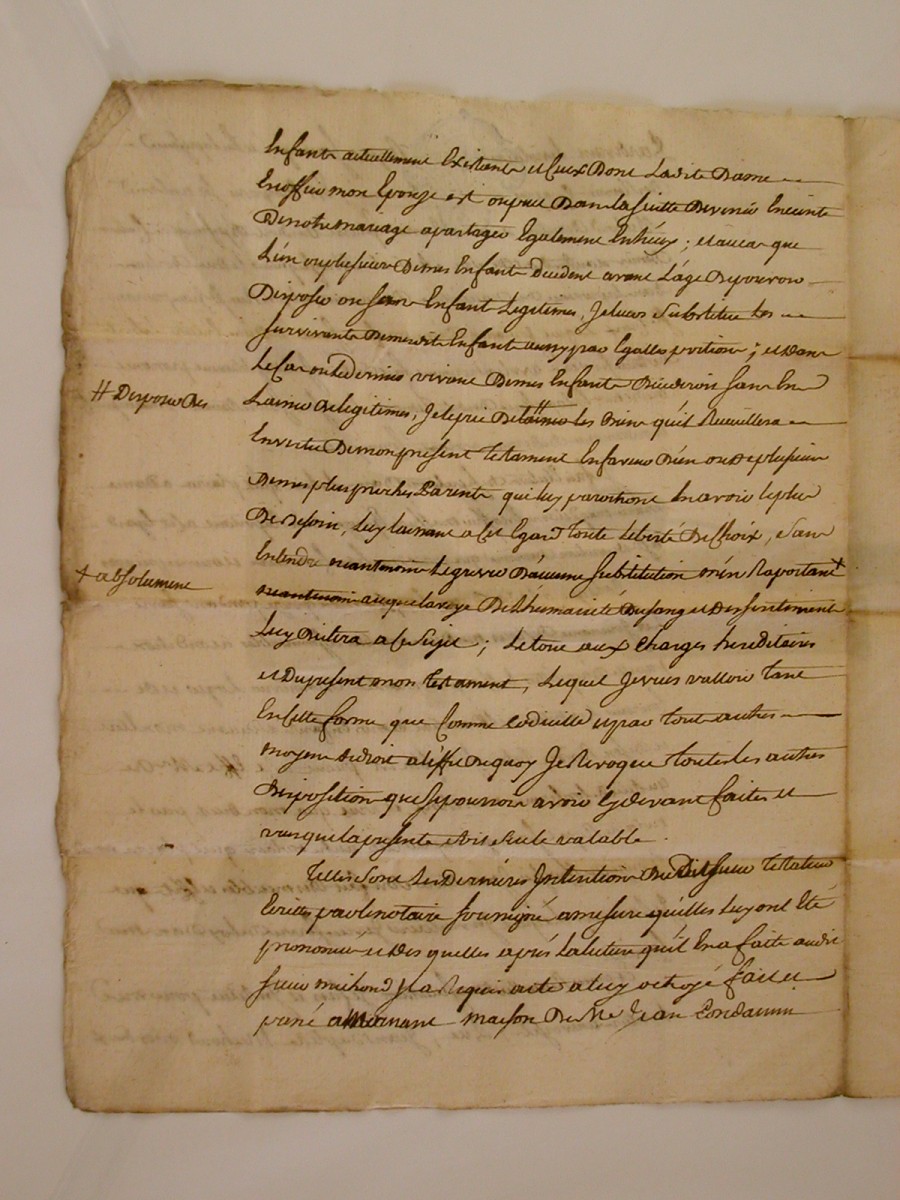 Enfants actuellement Existants et Ceux Dont Ladite Dame
mon Epouze est ou peut Dans la suitte Devenir Enceinte
De notre mariage a partager Egalement Entreux ; et au cas que
L'un ou plusieurs De mes Enfants decedent avant L'âge De pouvoir
Disposer ou sans Enfants Legitimes, Je leurs substitue Les
survivants De mesdits Enfants aussy par Egalles portions ; et Dans
Le Cas ou Le dernier vivant De mes Enfants Decederoit sans En
# Disposer Des
Laisser De legitimes, Je le prie De # les Biens qu'il Recueillera
En vertu De mon présent testament En faveur D'un ou De plusieurs
De mes plus proches Parents qui luy paroitront En avoir le plus
De Besoin, Luy laissant a Cet Egard toute Liberté De Choix, sans
Entendre Le grever D'aucune substitution m'en Raportant +
+ absolument
a ce que la voye De L'humanité Du sang et Des sentiments
Luy Dictera a Ce Sujet ; Le tout aux Charges hereditaires
et Du present mon testament, Lequel Je veux valloir tant
En Cette forme que Comme Codicille et par tout autres
moyens De droit a l'effet De quoy Je Revoque toutes les autres
Dispositions que Je pourrois avoir Cy devant faites et
veux que la presente soit seule valable.
Telles sont Les Dernières Intentions Dudit sieur testateur
Ecrites par le notaire soussigné a mesure qu'elles Luy ont Eté
prononcées et Des quelles après La lecture qu'il En a faite audit
sieur michond Il a Requis acte a luy octroyé fait et
passé a Mornant maison De Me Jean Condamin